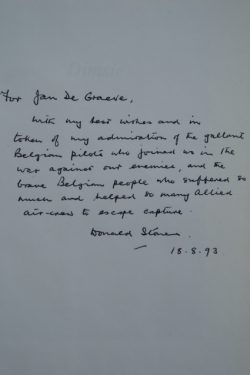 For Jan De Graeve,
With my best wishes and in
token of my admiration of the gallant
Belgian pilots who joined us in the
war against our enemies, and the
brave Belgian people who suffered so
much and helped so many Allied
air-crew to escape capture.
Donald
18.8.93